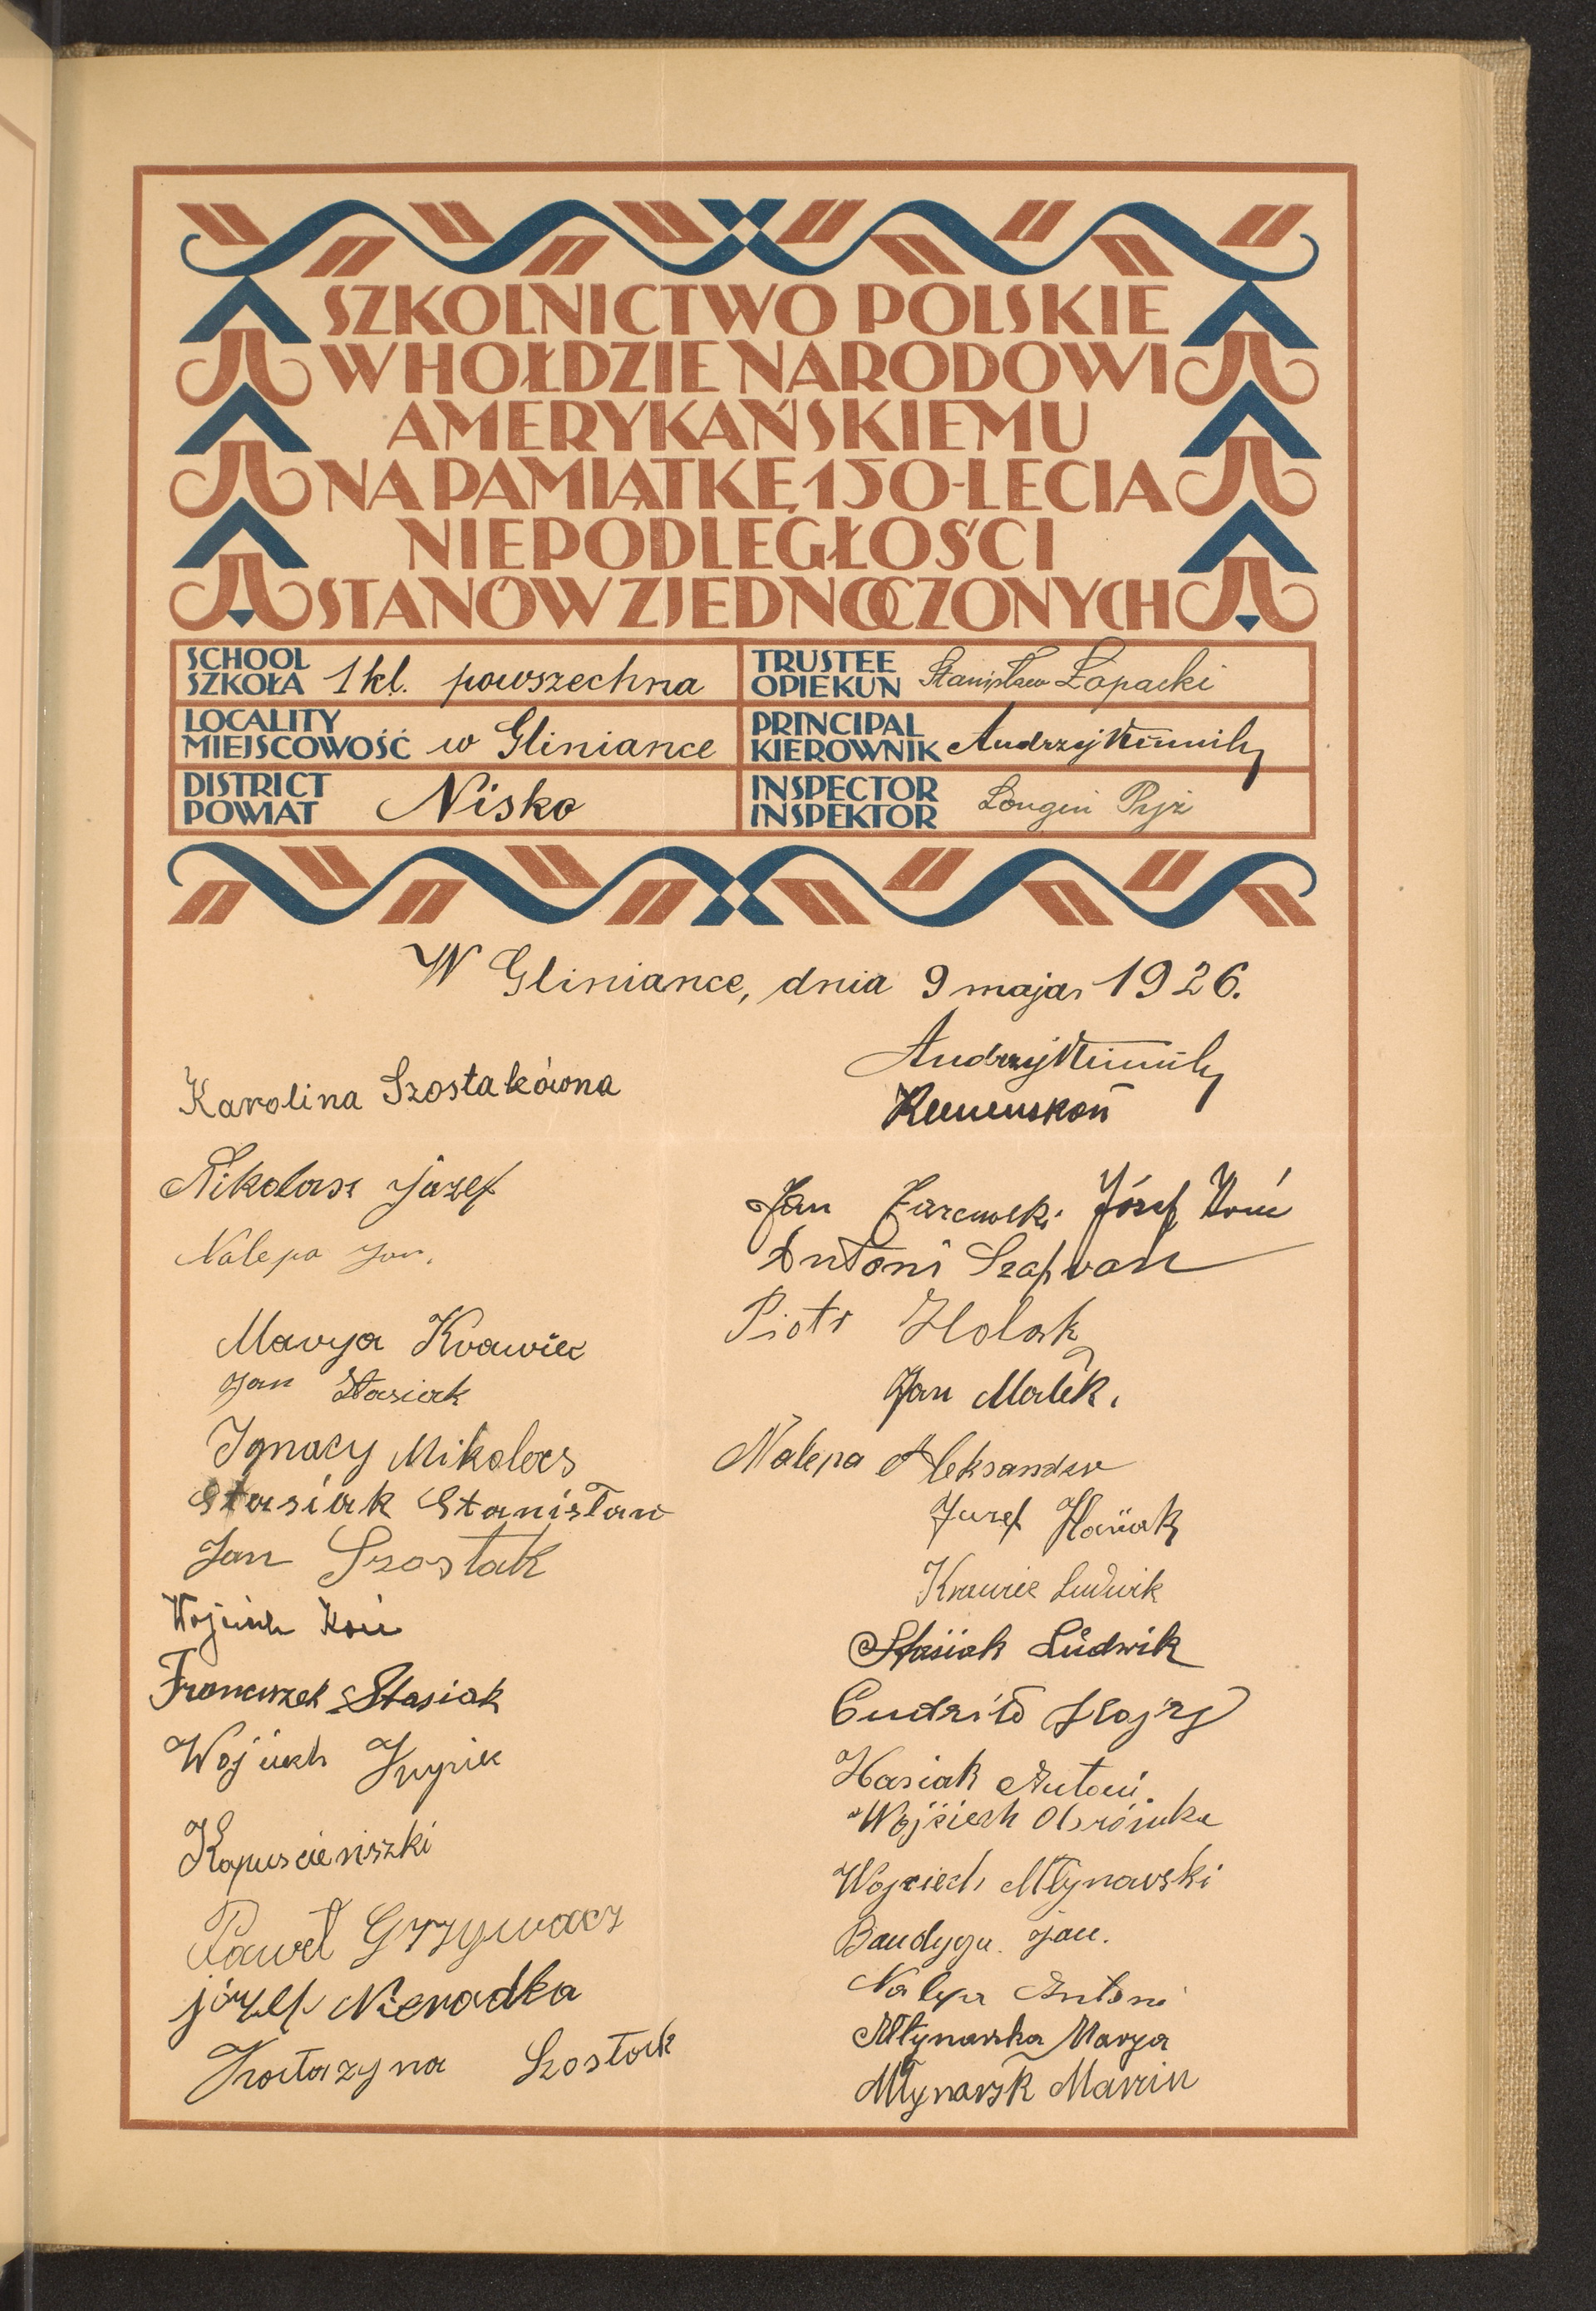 SZKOLNICTWO POLSKIE
W HOŁDZIE NARODOWI
AMERYKAŃSKIEMU
NA PAMIĄTKĘ 150-LECIA
NIEPODLEGŁOŚCI
STANÓW ZJEDNOCZONYCH
SCHOOL
SZKOŁA 1 kl. powszechna
TRUSTEE
OPIEKUN Stanisław Łopacki
LOCALITY
MIEJSCOWOŚĆ w Gliniance
PRINCIPAL
KIEROWNIK Andrzej
DISTRICT
POWIAT Nisko
INSPECTOR
INSPEKTOR Longin
W Gliniance, dnia 9 maja 1926.
Andrzej
Karolina Szostakówna
Mikołasz Józef
Nalepa Jan.
Marya Krawiec
Jan Stasiak
Ignacy Mikolocs
Stasiak Stanisław
Jan Szostak
Wojciech Koń
Franciszek Stasiak
Wojciech
Kapuscieniszki
Paweł Grzywacz
józef Nieradka
Katazyna Szostak
Jan Józef Koń
Antoni
Piotr
Jan Małek.
Nalepa Aleksander
Juzef
Krawiec Ludwik
Stasiak Ludwik
Cudziło
Hasiak Antoni
Wojciech
Wojciech Młynarski
Bandyga Jan.
Nalepa Antoni
Młynarska Marya
Młynarsk Marcin